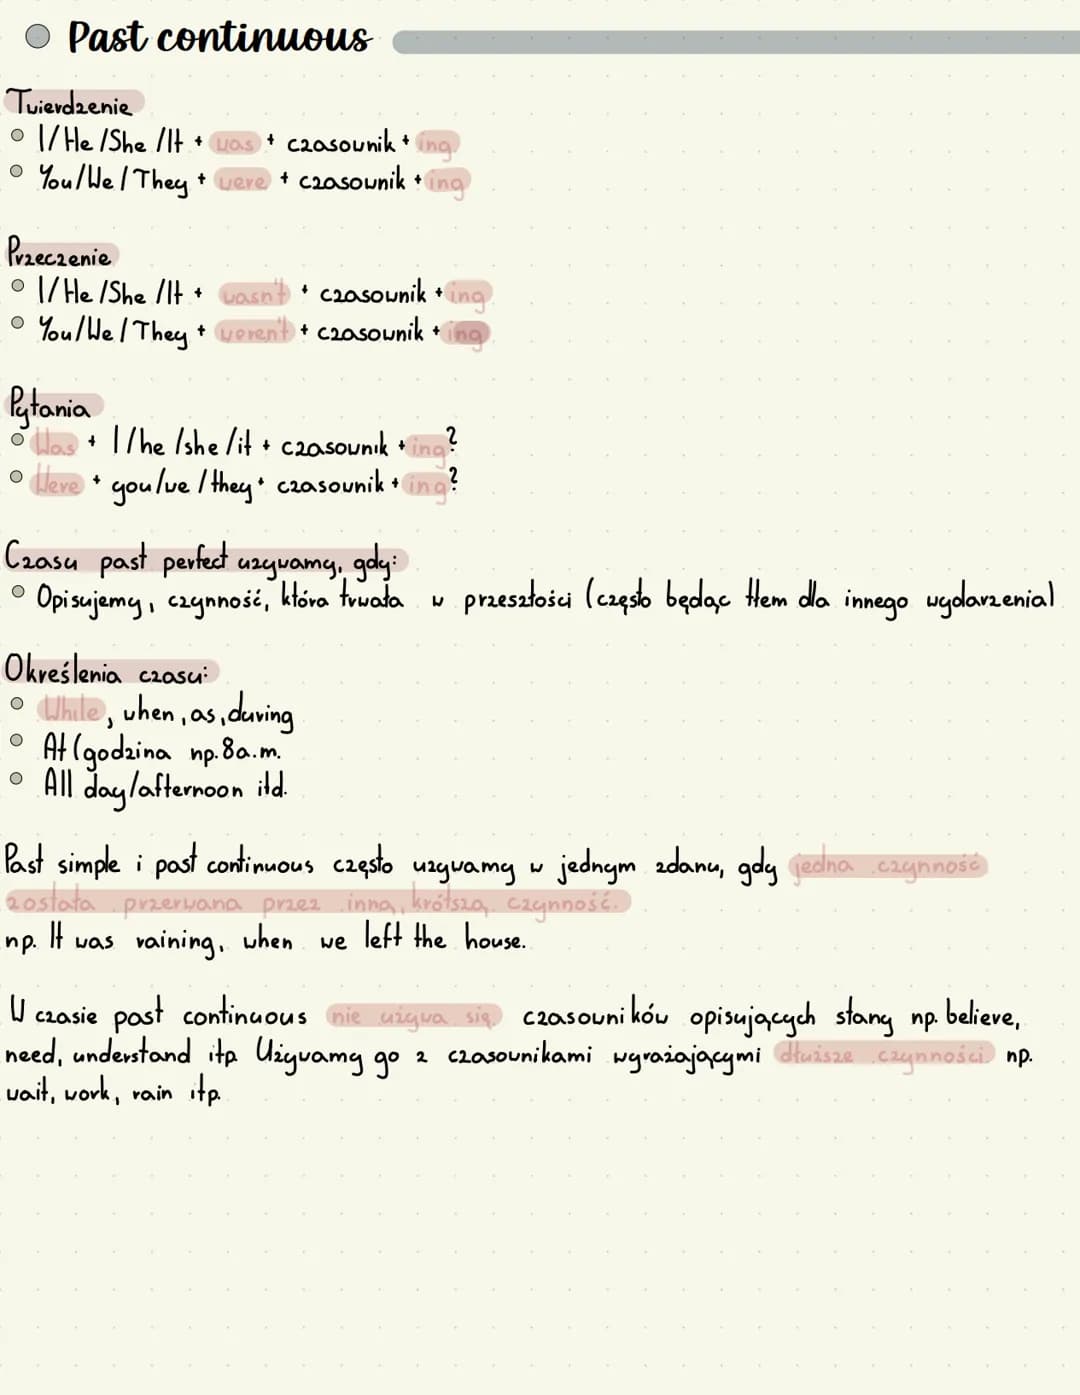 Past continuous
Twierdzenie
I/He/She/It + was + czasownik + ing
You/We/They + were + czasownik + ing
Przeczenie
I/He/She/It + wasn't + czasownik + ing
You/We/They + weren't + czasownik + ing
Pytania
Was + I/he/she/it + czasownik + ing?
Were + you/we/they + czasownik + ing?
Czasu past perfect używamy, gdy:
Opisujemy, czynność, która trwała w przeszłości (często będąc tłem dla innego wydarzenia)
Określenia czasu:
While, when, as, during
At (godzina np. 8a.m.
All day/afternoon itd.
Past simple i past continuous często używamy w jednym zdanu, gdy jedna czynność
została przerwana przez inną, krótszą czynność.
np. It was raining, when we left the house.
W czasie past continuous nie używa się czasowników opisujących stany np. believe,
need, understand itp. Używamy go z czasownikami wyrażającymi dłuższe czynności np.
wait, work, rain itp.